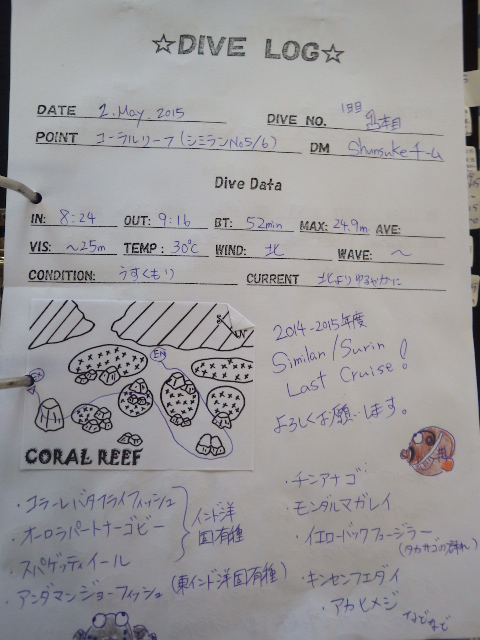 ☆DIVE LOG☆
DATE 2. May. 2015
DIVE NO. 1日目 1本目
POINT コーラルリーフ (シミランNo5/6)
DM Shunsukeチーム
Dive Data
IN: 8:24 OUT: 9:16 BT: 52min MAX: 24.9m AVE:
VIS: ~25m TEMP: 30℃ WIND: 北 WAVE: ~
CONDITION: うすぐもり CURRENT 北よりゆるやかに
EN
EX
CORAL REEF
2014-2015年度
Similan/Surin
Last Cruise!
よろしくお願いします。
・コラーレバタフライフィッシュ
・オーロラパートナーゴビー
・スパゲッティイール
インド洋
固有種
・アンダマンジョーフィッシュ (東インド洋固有種)
・チンアナゴ
・モンダルマガレイ
・イエローバックフュージラー
(タカサゴの群れ)
・キンセンフエダイ
・アカヒメジ
などなど